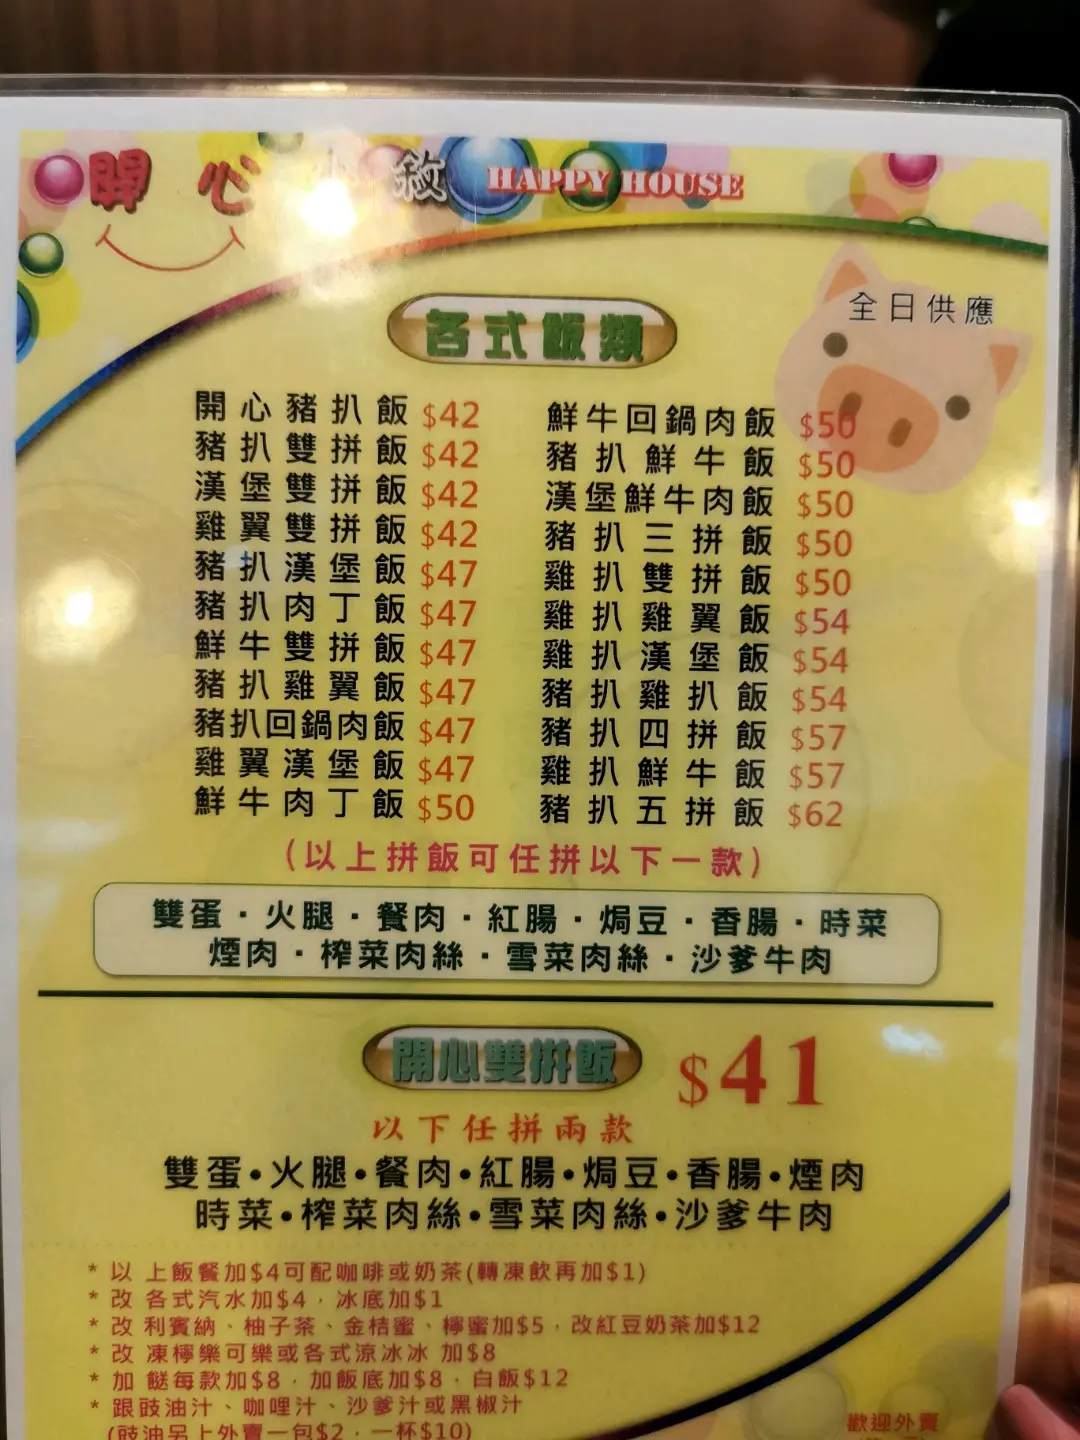 開心 敘 HAPPY HOUSE
全日供應
各式飯類
開心豬扒飯 $42
豬扒雙拼飯 $42
漢堡雙拼飯 $42
雞翼雙拼飯 $42
豬扒漢堡飯 $47
豬扒肉丁飯 $47
鮮牛雙拼飯 $47
豬扒雞翼飯 $47
豬扒回鍋肉飯 $47
雞翼漢堡飯 $47
鮮牛肉丁飯 $50
鮮牛回鍋肉飯 $50
豬扒鮮牛飯 $50
漢堡鮮牛肉飯 $50
豬扒三拼飯 $50
雞扒雙拼飯 $50
雞扒雞翼飯 $54
雞扒漢堡飯 $54
豬扒雞扒飯 $54
豬扒四拼飯 $57
雞扒鮮牛飯 $57
豬扒五拼飯 $62
(以上拼飯可任拼以下一款)
雙蛋·火腿·餐肉·紅腸·焗豆·香腸·時菜
煙肉·榨菜肉絲·雪菜肉絲·沙爹牛肉
開心雙拼飯 $41
以下任拼兩款
雙蛋•火腿•餐肉•紅腸•焗豆•香腸•煙肉
時菜•榨菜肉絲•雪菜肉絲•沙爹牛肉
* 以上飯餐加$4可配咖啡或奶茶(轉凍飲再加$1)
* 改 各式汽水加$4，冰底加$1
* 改 利賓納、柚子茶、金桔蜜、檸蜜加$5，改紅豆奶茶加$12
* 改 凍檸樂可樂或各式涼冰冰 加$8
* 加 餸每款加$8，加飯底加$8，白飯$12
* 跟豉油汁、咖哩汁、沙爹汁或黑椒汁
(豉油另上外賣一包$2，一杯$10)
歡迎外賣